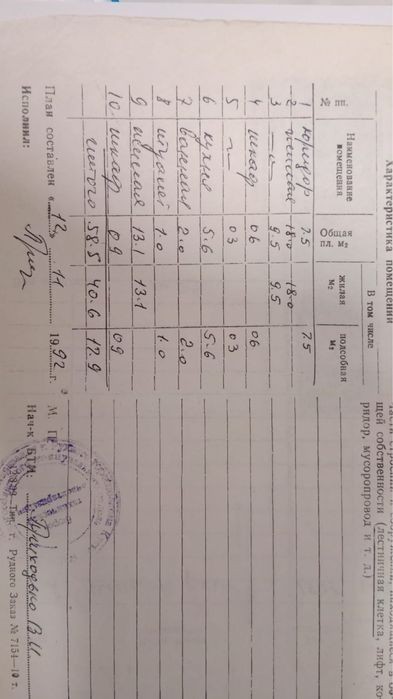 Характеристика помещений
№ пп.
Наименование помещения
Общая пл. м²
В том числе
жилая м²
подсобная м²
1 коридор 7.5 7.5
2 жилая 18.0 18.0
3 —"— 9.5 9.5
4 шкаф 06 06
5 —"— 03 03
6 кухня 5.6 5.6
7 ванная 2.0 2.0
8 туалет 1.0 1.0
9 жилая 13.1 13.1
10. шкаф 09 09
итого 58.5 40.6 17.9
План составлен «12» 11 1992 г.
Исполнил:
щей собственности (лестничная клетка, лифт, ко
ридор, мусоропровод и т. д.)
М. П.
Нач-к БТИ:
г. Рудного Заказ № 7154—10 т.